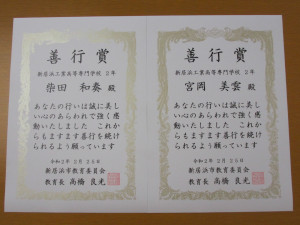 善行賞
新居浜工業高等専門学校 2年
柴田 和奏 殿
あなたの行いは誠に美し
い心のあらわれで強く感
動いたしました これか
らもますます善行を続け
られるよう願っています
令和2年2月25日
新居浜市教育委員会
教育長 高橋 良光
善行賞
新居浜工業高等専門学校 2年
宮岡 美雲 殿
あなたの行いは誠に美し
い心のあらわれで強く感
動いたしました これか
らもますます善行を続け
られるよう願っています
令和2年2月25日
新居浜市教育委員会
教育長 高橋 良光